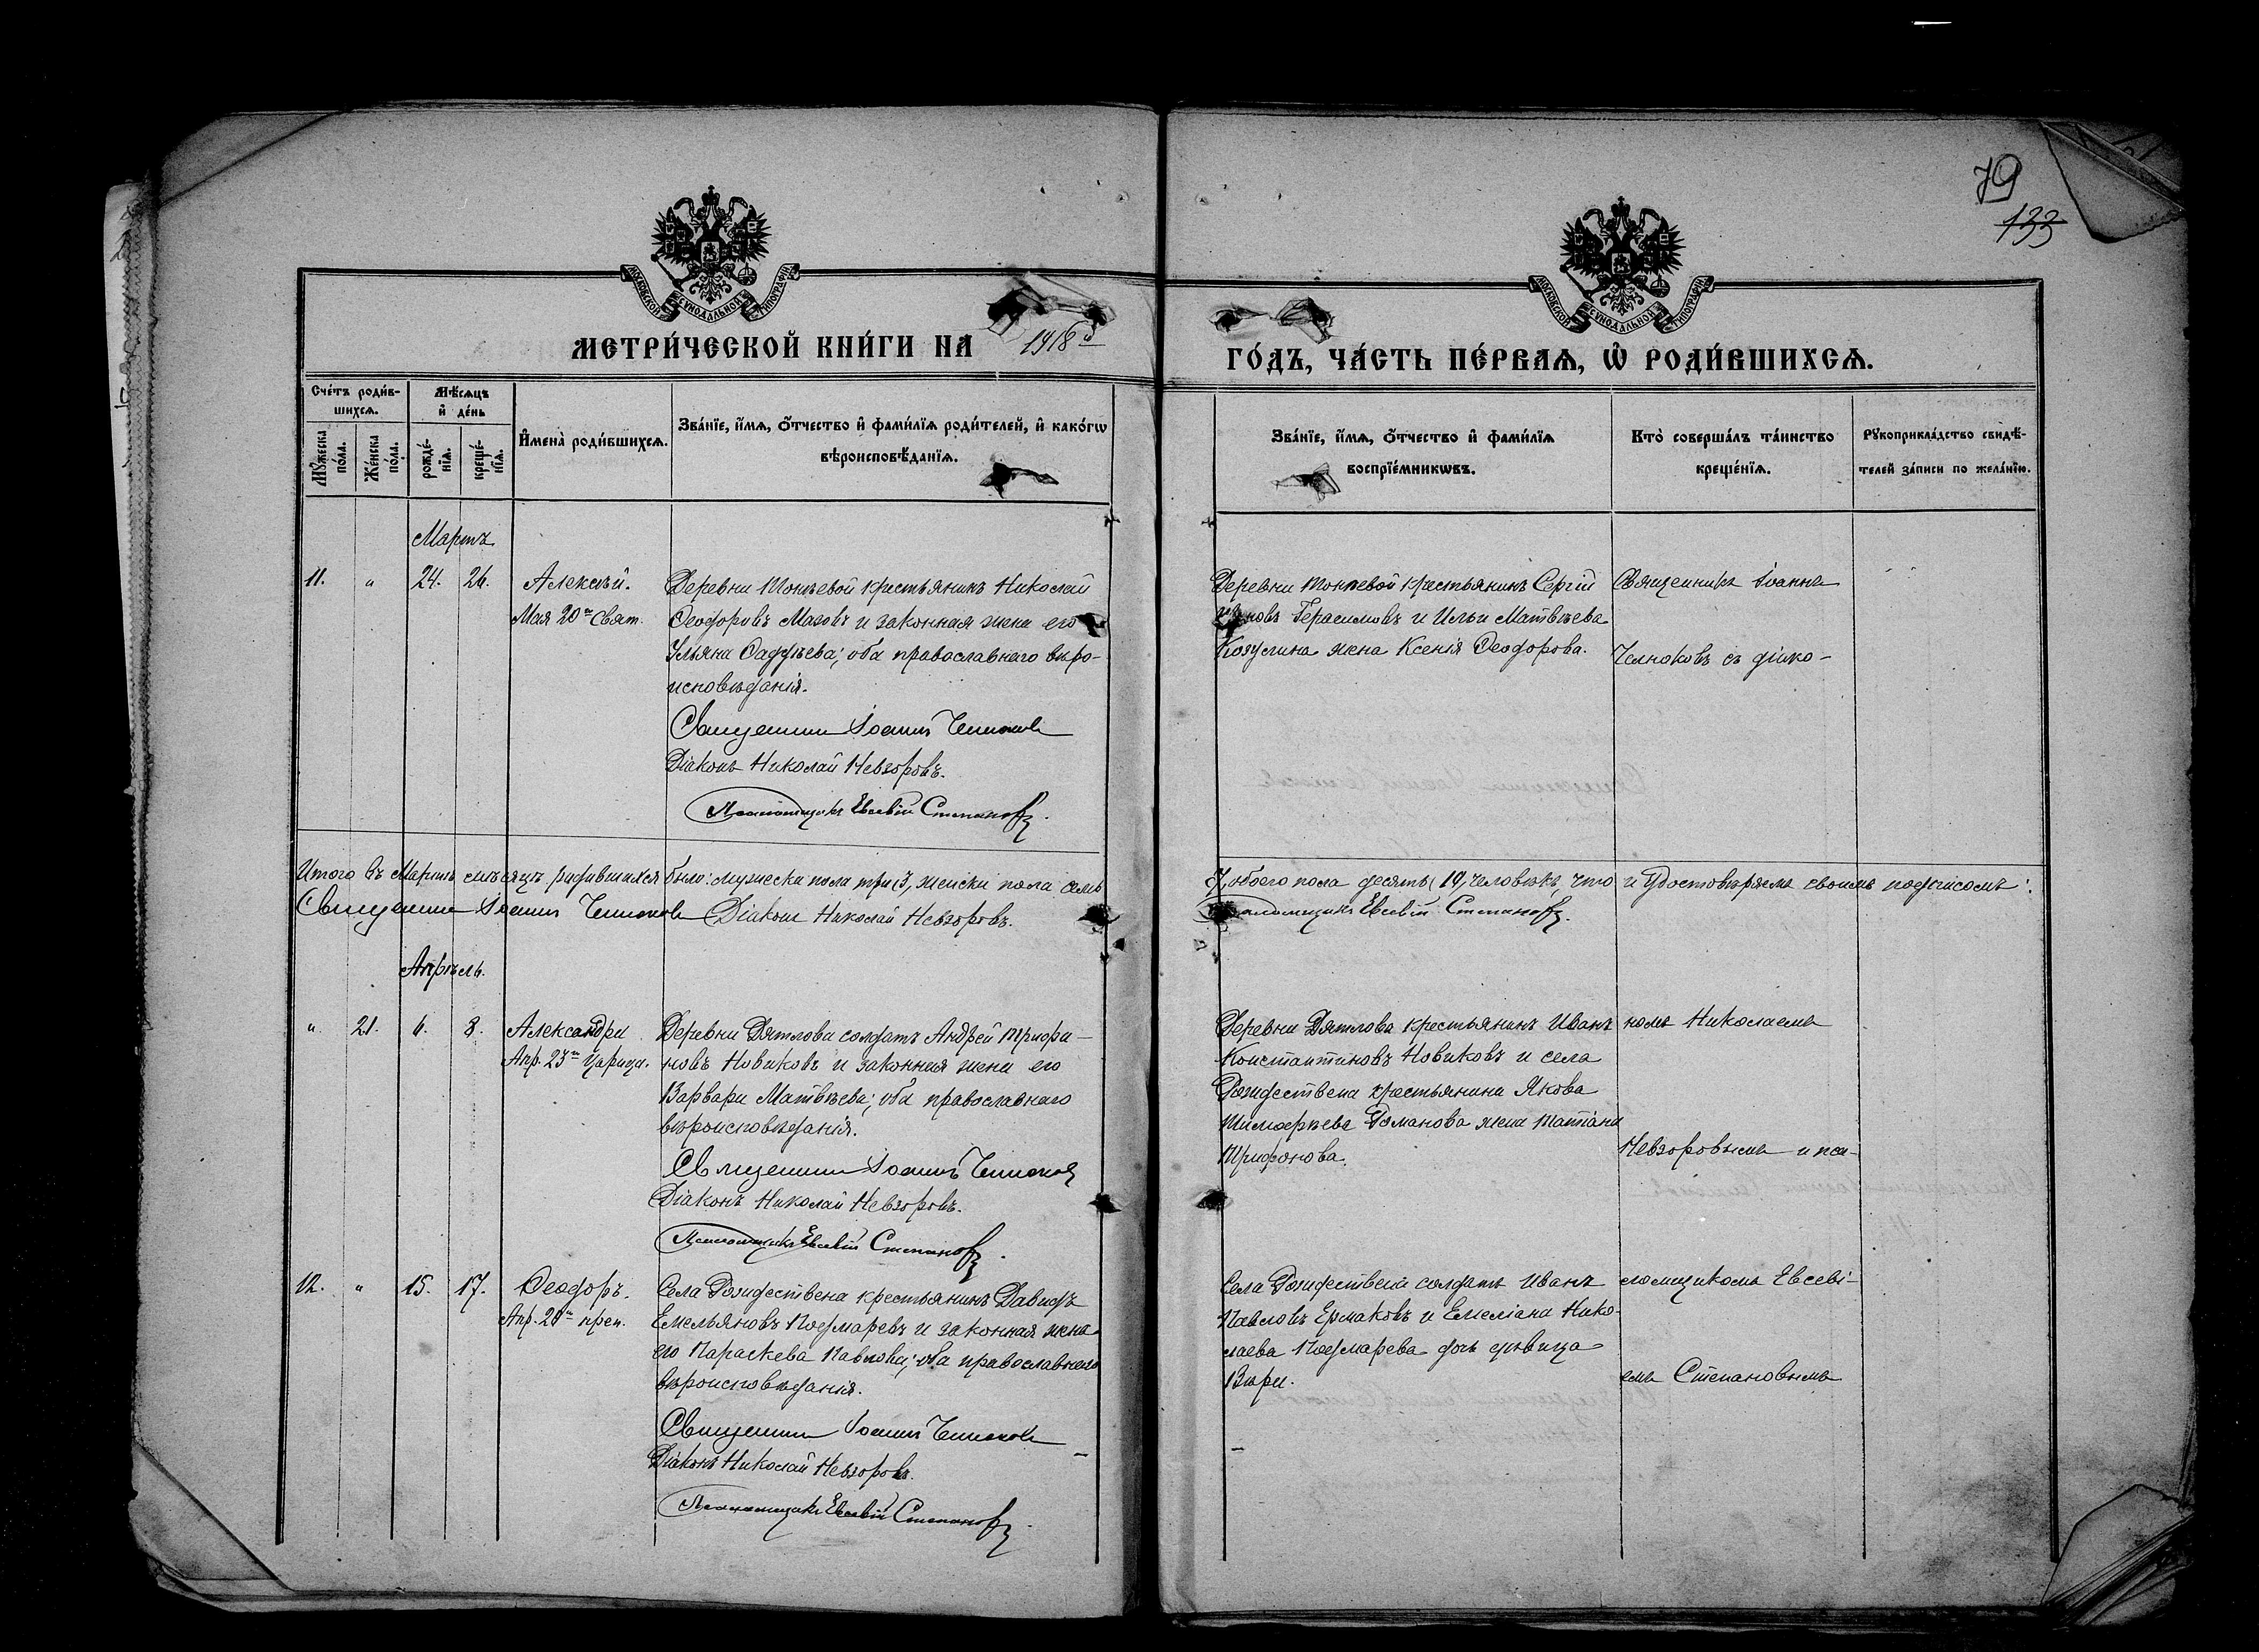 79
133
МОСКОВСКОЙ СѴНОДАЛЬНОЙ ТИПОГРАФІИ
МОСКОВСКОЙ СѴНОДАЛЬНОЙ ТИПОГРАФІИ
МЕТРИ́ЧЕСКОЙ КНИ́ГИ НА 1918й ГО́ДЪ, ЧА́СТЬ ПЕ́РВАѦ, Ѡ҆ РОДИ́ВШИХСѦ.
Сче́тъ роди́в-
шихсѧ.
Мѣ́сѧцъ
и҆ де́нь
Мꙋ́жеска по́ла.
Же́нска по́ла.
рожде́-
нїѧ.
креще́-
нїѧ.
И҆мена̀ роди́вшихсѧ.
Зва́нїе, и҆́мѧ, ѻ҆́тчество и҆ фами́лїѧ роди́телей, и҆ како́гѡ
вѣроисповѣ́данїѧ.
Зва́нїе, и҆́мѧ, ѻ҆́тчество и҆ фами́лїѧ
воспрїе́мникѡвъ.
Кто̀ соверша́лъ та́инство
креще́нїѧ.
Рꙋкоприкла́дство свидѣ́-
телей за́писи по жела́нїю.
Мартъ
11. " 24. 26. Алексѣй.
Мая 20го Свят.
Деревни Тонѣевой крестьянинъ Николай
Ѳеодоровъ Мазовъ и законная жена его
Ульяна Ѳаддѣева; оба православнаго вѣро-
исповѣданія.
Священникъ Іоаннъ Челноковъ
Діаконъ Николай Невзоровъ.
Псаломщикъ Евсевій Степановъ.
Деревни Тонѣевой крестьянинъ Сергій
Герасимовъ и Ильи Матвѣева
жена Ксенія Ѳеодорова.
Священникъ Іоаннъ
Челноковъ съ діако-
Итого въ Мартѣ мѣсяцѣ родившихся было: мужеска пола три (3, женска пола семь
7, обоего пола десять (10, человѣкъ, что и удостовѣряемъ своимъ подписомъ:
Священникъ Іоаннъ Челноковъ Діаконъ Николай Невзоровъ.
Псаломщикъ Евсевій Степановъ.
Апрѣль.
" 21. 6. 8. Александра
Апр. 23го Цариц.
Деревни Дятлова солдатъ Андрей Трифо-
новъ Новиковъ и законная жена его
Варвара Матвѣева; оба православнаго
вѣроисповѣданія.
Священникъ Іоаннъ Челноковъ
Діаконъ Николай Невзоровъ.
Псаломщикъ Евсевій Степановъ.
Деревни Дятлова крестьянинъ Иванъ
Константиновъ Новиковъ и села
Рождествена крестьянина Якова
Тимоѳеева Романова жена Татіана
Трифонова.
номъ Николаемъ
Невзоровымъ и пса-
12. " 15. 17. Ѳеодоръ.
Апр. 20го преп.
Села Рождествена крестьянинъ Давидъ
Емельяновъ Кодмаревъ и законная жена
его Параскева Павлова; оба православнаго
вѣроисповѣданія.
Священникъ Іоаннъ Челноковъ
Діаконъ Николай Невзоровъ.
Псаломщикъ Евсевій Степановъ.
Села Рождествена солдатъ Иванъ
Павловъ Ермаковъ и Емеліана Нико-
лаева Кодмарева дочь дѣвица
Вѣра.
ломщикомъ Евсеві-
емъ Степановымъ